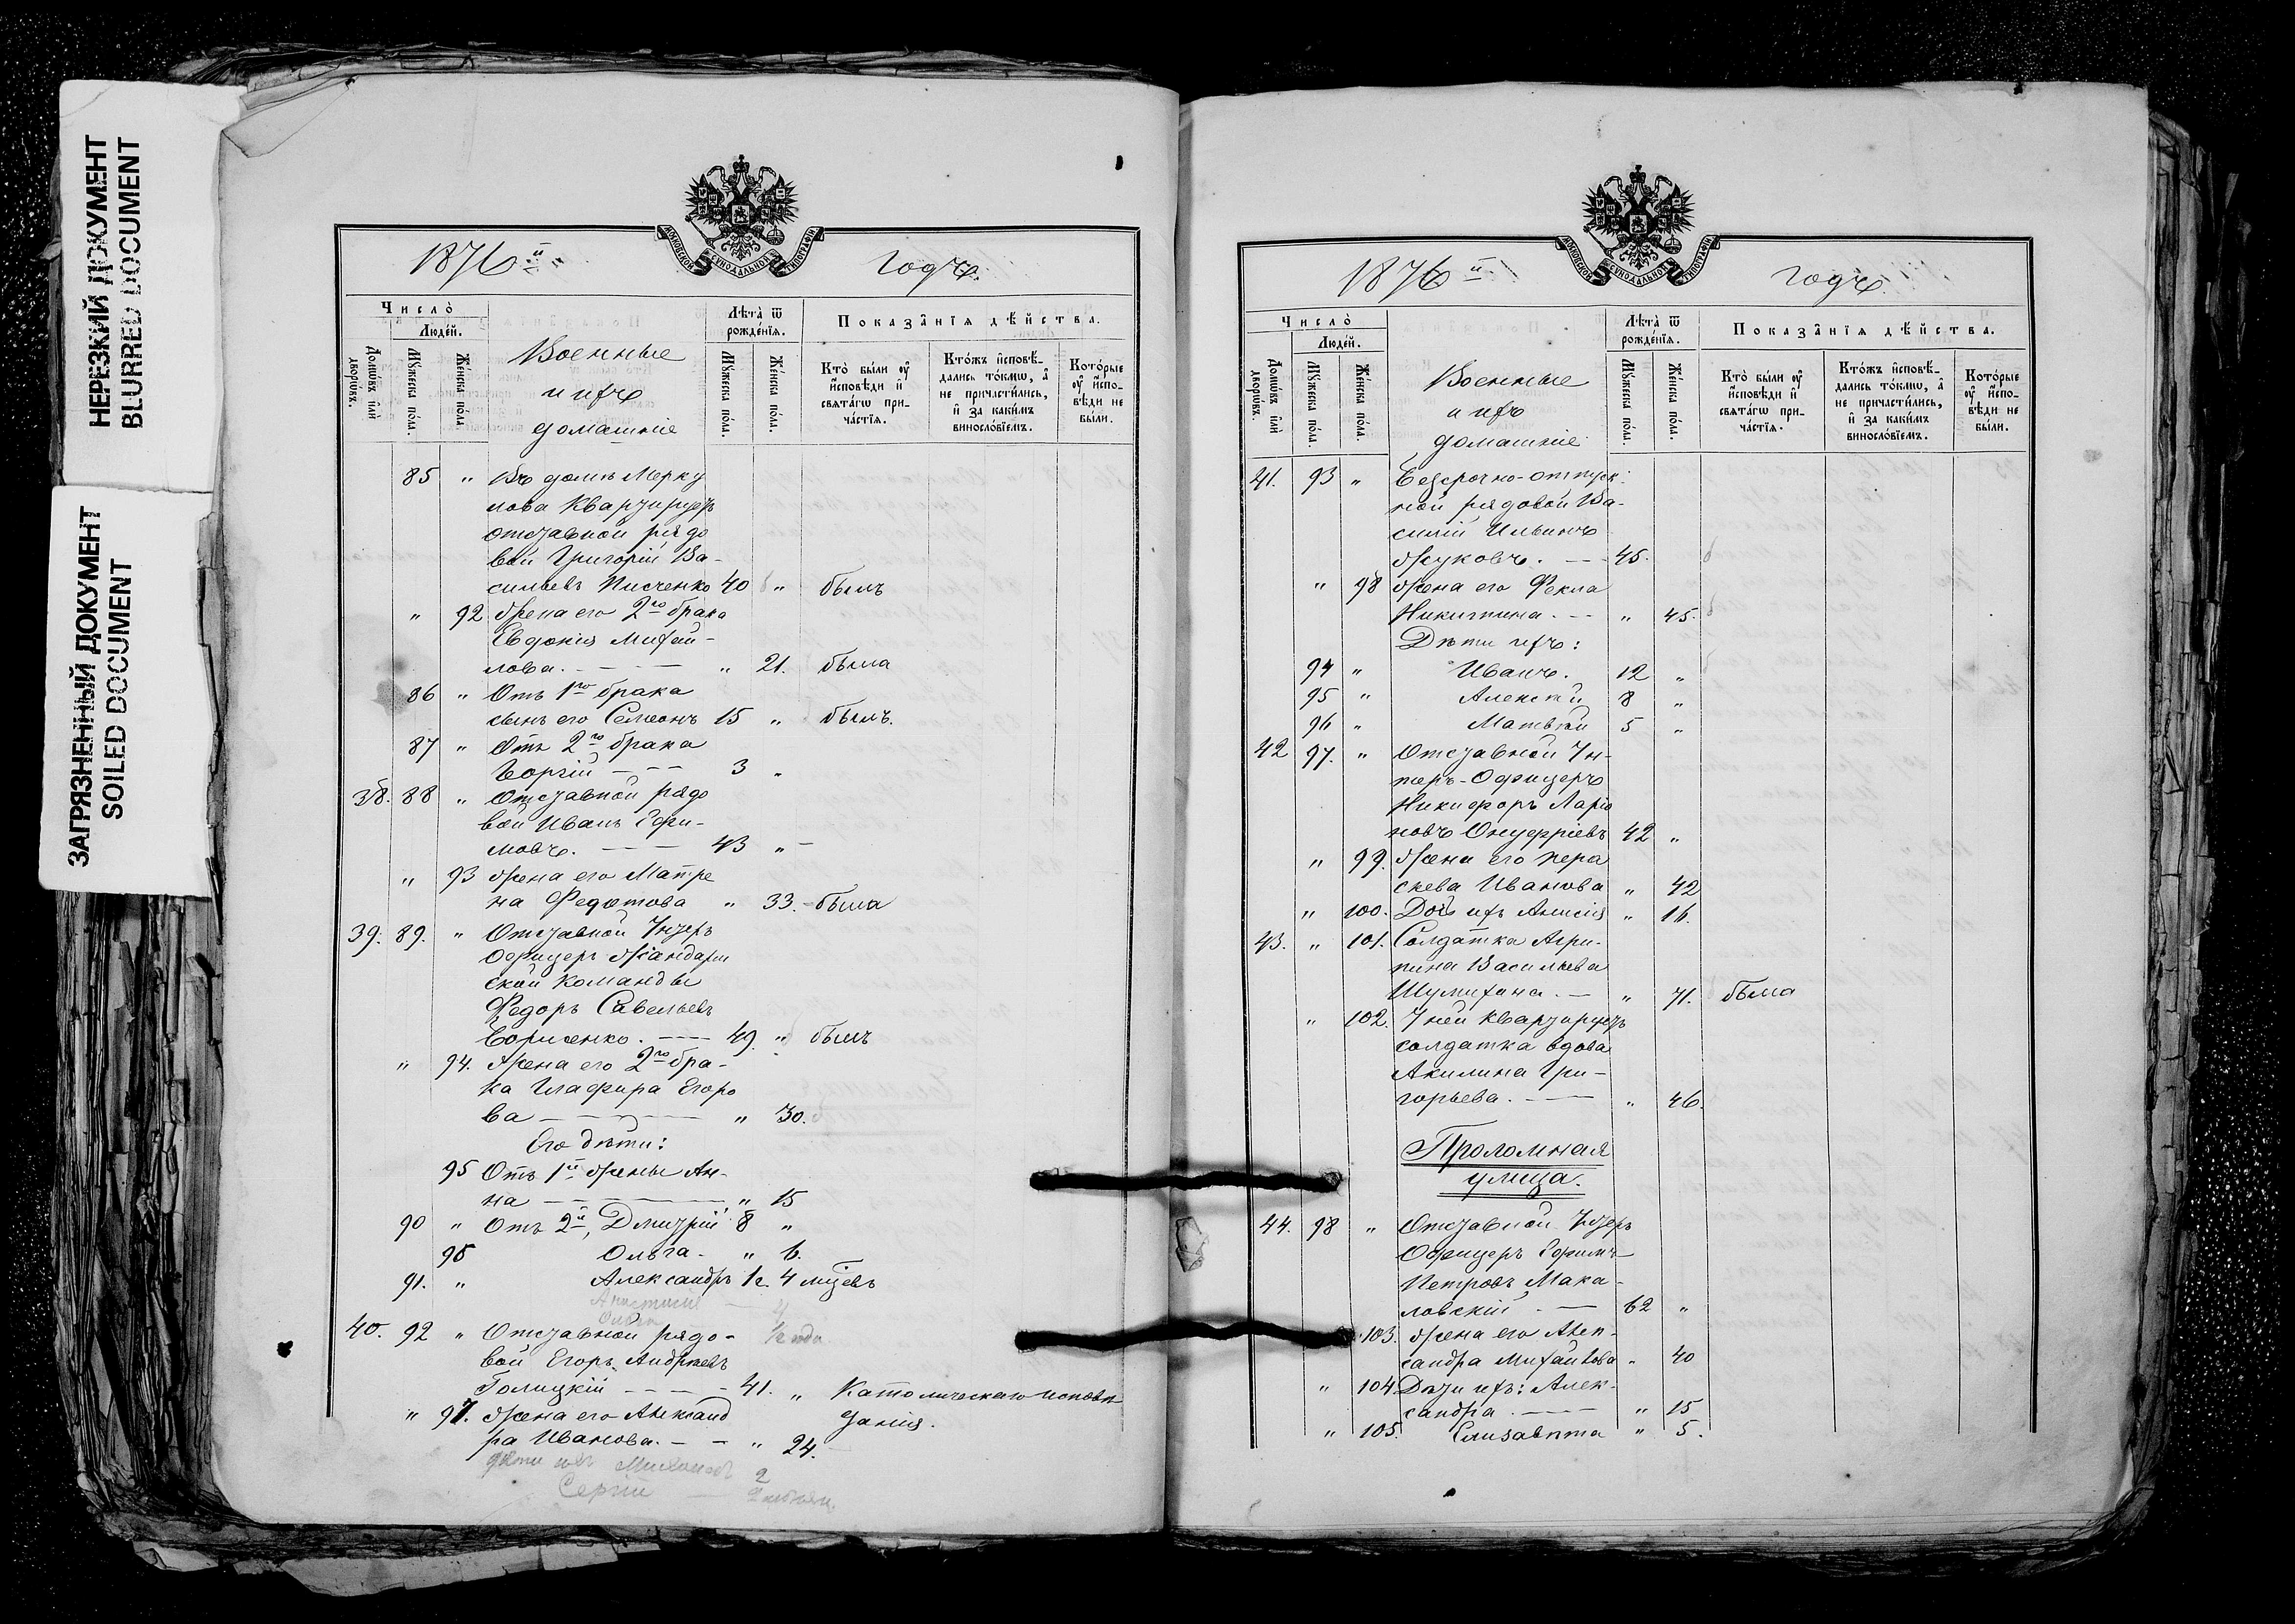 НЕРЕЗКИЙ ДОКУМЕНТ
BLURRED DOCUMENT
ЗАГРЯЗНЕННЫЙ ДОКУМЕНТ
SOILED DOCUMENT
МОСКОВСКОЙ СѴНОДАЛЬНОЙ ТИПОГРАФІИ
1876й годъ.
Число̀
Людей.
Домѡвъ и҆лѝ дворѡвъ.
Мꙋжеска пола.
Женска пола.
Военные
и ихъ
домашніе
Лѣта̀ ѿ
рожденїѧ.
Мꙋжеска пола.
Женска пола.
Показанїѧ дѣйства.
Кто̀ были ᲂу҆
и҆сповѣди и҆
свѧтагѡ при-
частїѧ.
Ктожъ и҆сповѣ-
дались токмѡ, а҆
не причастились,
и҆ за какимъ
винословїемъ.
Которые
ᲂу҆ и҆спо-
вѣди не
были.
85 " Въ домѣ Мерку
лова квартируетъ
отставной рядо
вой Григорій Ва-
сильевъ Писченко 40 " былъ
" 92 Жена его 2го брака
Евдокія Михай-
лова. - - — " 21. была
86 " Отъ 1го брака
сынъ его Семеонъ 15 " былъ.
87 " Отъ 2го брака
Георгій - - - 3 "
38. 88 " Отставной рядо
вой Иванъ Ефи-
мовъ. - - - 43 " -
" 93 Жена его Матре
на Федотова " 33. - была
39. 89. " Отставной Унтеръ
Офицеръ Жандарм
ской команды
Федоръ Савельевъ
Борисенко. - - - 49. " былъ
" 94. Жена его 2го бра-
ка Глафира Егоро
ва - - - " 30.
Его дѣти:
95 Отъ 1й жены Ан-
на - - - " 15
90 " Отъ 2й, Дмитрій 8 "
96 Ольга. " 6.
91. " Александръ 1 г. 4 мцевъ
40. 92 " Отставной рядо-
вой Егоръ Андреевъ
Голицкій - - - - 41. " Католическаго исповѣ
данія.
" 97. Жена его Александ
ра Иванова. - - " 24.
дѣти ихъ
Сергій 2
1876й годъ.
МОСКОВСКОЙ СѴНОДАЛЬНОЙ ТИПОГРАФІИ
Число̀
Людей.
Домѡвъ и҆лѝ дворѡвъ.
Мꙋжеска пола.
Женска пола.
Военные
и ихъ
домашніе
Лѣта̀ ѿ
рожденїѧ.
Мꙋжеска пола.
Женска пола.
Показанїѧ дѣйства.
Кто̀ были ᲂу҆
и҆сповѣди и҆
свѧтагѡ при-
частїѧ.
Ктожъ и҆сповѣ-
дались токмѡ, а҆
не причастились,
и҆ за какимъ
винословїемъ.
Которые
ᲂу҆ и҆спо-
вѣди не
были.
41. 93 " Безсрочно-отпуск-
ной рядовой Ва-
силій Ильинъ
Жуковъ. - - 45.
" 98 Жена его Фекла
Никитина. - - " 45.
Дѣти ихъ:
94 " Иванъ. 12 "
95 " Алексѣй 8 "
96 " Матвѣй 5 "
42 97. " Отставной Ун-
теръ-Офицеръ
Никифоръ Ларіо
новъ Онуфріевъ 42 "
" 99. Жена его Пера
скева Иванова " 42
" 100. Дочь ихъ Анисія " 16.
43. " 101. Солдатка Агри-
пина Васильева
Шумихина. - " 71. была
" 102. У ней квартируетъ
солдатка вдова
Акилина Гри-
горьева. - — " 46.
Проломная
улица.
44. 98 " Отставной Унтеръ
Офицеръ Ефимъ
Петровъ Мака-
ловскій - — 62 "
103. Жена его Алек-
сандра Михайлова " 40
" 104 Дѣти ихъ: Алек-
сандра. - — " 15
" 105. Елизавѣта " 5.